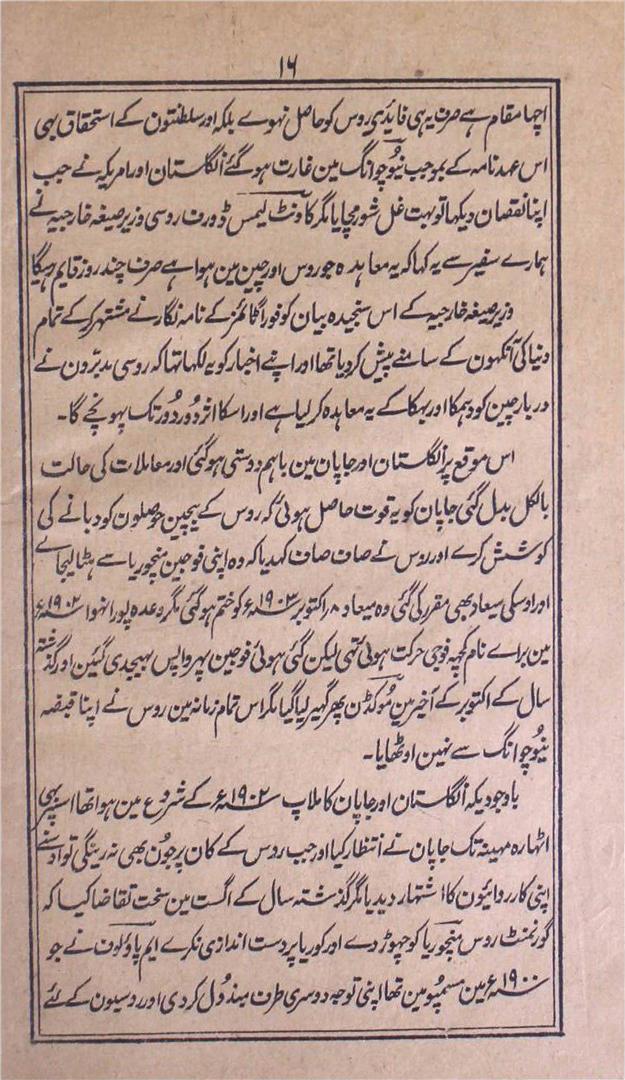 ۱۶
اچھا مقام ہے صرف یہ ہی فایدی روس کو حاصل نہوے بلکہ اور سلطنتون کے استحقاق بھی
اس عہدنامہ کے بموجب نیوچوانگ مین غارت ہوگئے انگلستان اور امریکہ نے جب
اپنا نقصان دیکھا تو بہت غل شور مچایا مگر کاونٹ لیمس ڈورف روسی وزیر صیغہ خارجیہ نے
ہمارے سفیر سے یہ کہا کہ یہ معاہدہ جو روس اور چین مین ہوا ہے صرف چند روز قایم رہیگا
وزیر صیغہ خارجیہ کے اس سنجیدہ بیان کو فوراً ٹائمز کے نامہ نگار نے مشتہر کرکے تمام
دنیا کی آنکھون کے سامنے پیش کردیا تھا اور اپنے اخبار کو یہ لکھا تھا کہ روسی مدبّرون نے
دربار چین کو دہمکا اور بہکا کے یہ معاہدہ کرلیا ہے اور اسکا اثر دُور دُور تک پہونچے گا۔
اس موقع پر انگلستان اور جاپان مین باہم دوستی ہوگئی اور معاملات کی حالت
بالکل بدل گئی جاپان کو یہ قوت حاصل ہوئی کہ روس کے بیچین حوصلون کو دبانے کی
کوشش کرے اور روس نے صاف صاف کہدیا کہ وہ اپنی فوجین منچوریا سے ہٹا لیجاے
اور اوسکی میعاد بھی مقرر کی گئی وہ میعاد ۸ اکتوبر ۱۹۰۳ء کو ختم ہوگئی مگر وعدہ پورا نہوا ۱۹۰۲ء
مین براے نام کچھ فوجی حرکت ہوئی تھی لیکن گئی ہوئی فوجین پھر واپس بھیجدی گئین اور گذشتہ
سال کے اکتوبر کے اخیر مین موکڈن پھر گھیر لیا گیا مگر اس تمام زمانہ مین روس نے اپنا قبضہ
نیوچوانگ سے نہین اوٹھایا۔
باوجودیکہ انگلستان اور جاپان کا ملاپ ۱۹۰۲ء کے شروع مین ہوا تھا اسپر بھی
اٹھارہ مہینہ تک جاپان نے انتظار کیا اور جب روس کے کان پر جُون بھی نہ رینگی تو اوسنے
اپنی کارروائیون کا اشتہار دیدیا مگر گذشتہ سال کے اگست مین سخت تقاضا کیا کہ
گورنمنٹ روس منچوریا کو چھوڑ دے اور کوریا پر دست اندازی نکرے ایم پاولوف نے جو
۱۹۰۰ء مین مسمپو مین تھا اپنی توجہ دوسری طرف مبذول کردی اور روسیون کے لئے